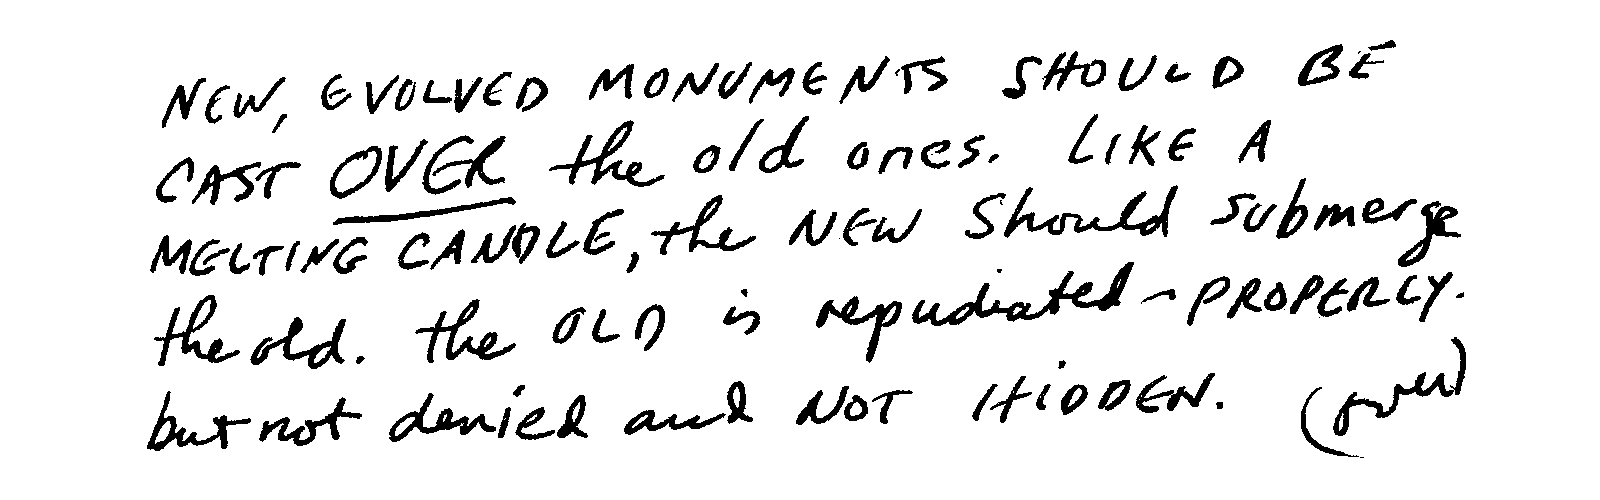 NEW, EVOLVED MONUMENTS SHOULD BE
CAST OVER the old ones. LIKE A
MELTING CANDLE, the NEW Should submerge
the old. the OLD is repudiated - PROPERLY.
but not denied and NOT HIDDEN. (over)